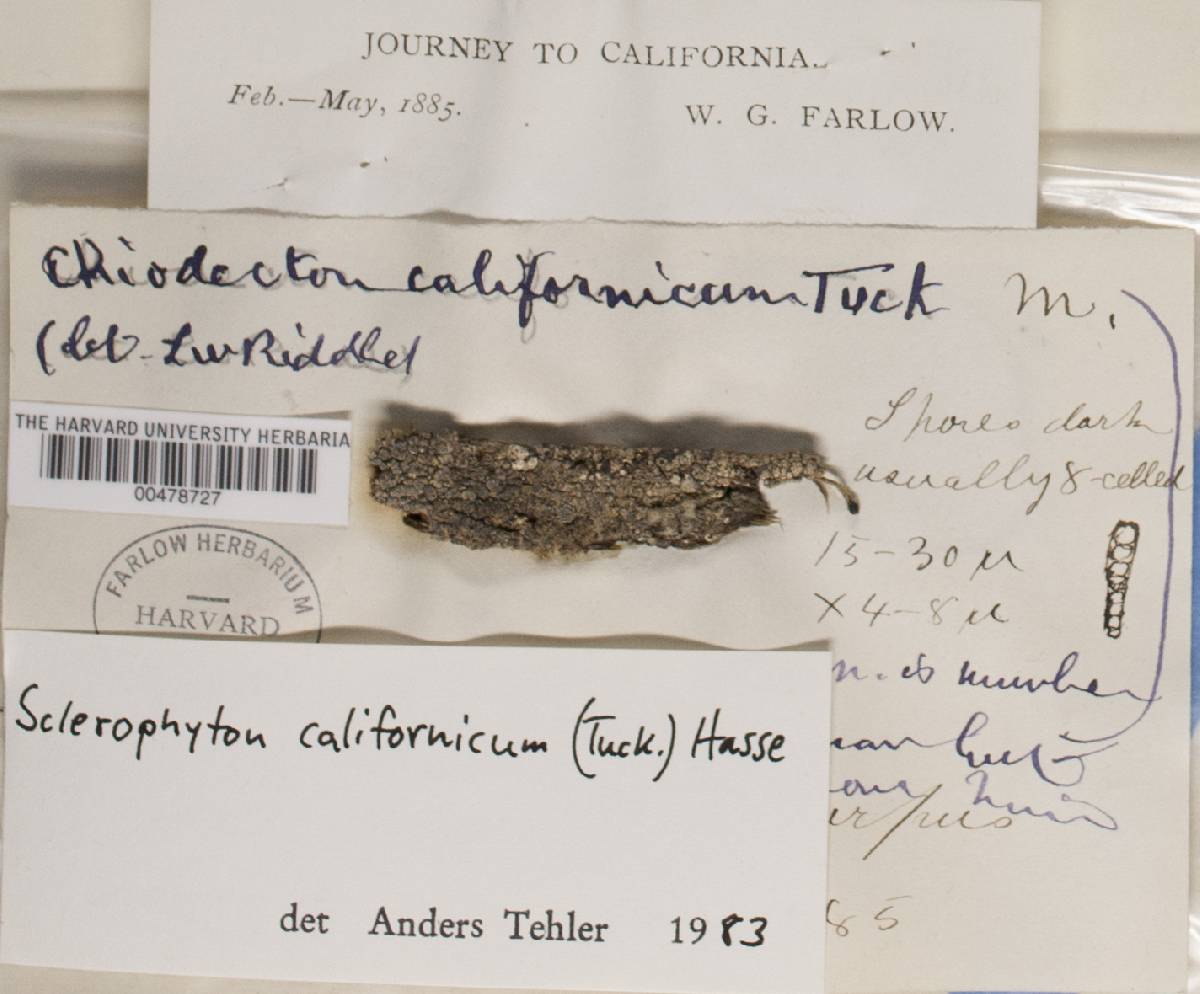 JOURNEY TO CALIFORNIA.
Feb.—May, 1885.
W. G. FARLOW.
Chiodecton californicum Tuck M.
(det. LW Riddle)
THE HARVARD UNIVERSITY HERBARIA
00478727
FARLOW HERBARIUM
HARVARD
Spores dark
usually 8-celled
15-30 µ
× 4-8 µ
Sclerophyton californicum (Tuck.) Hasse
det Anders Tehler 1983
85